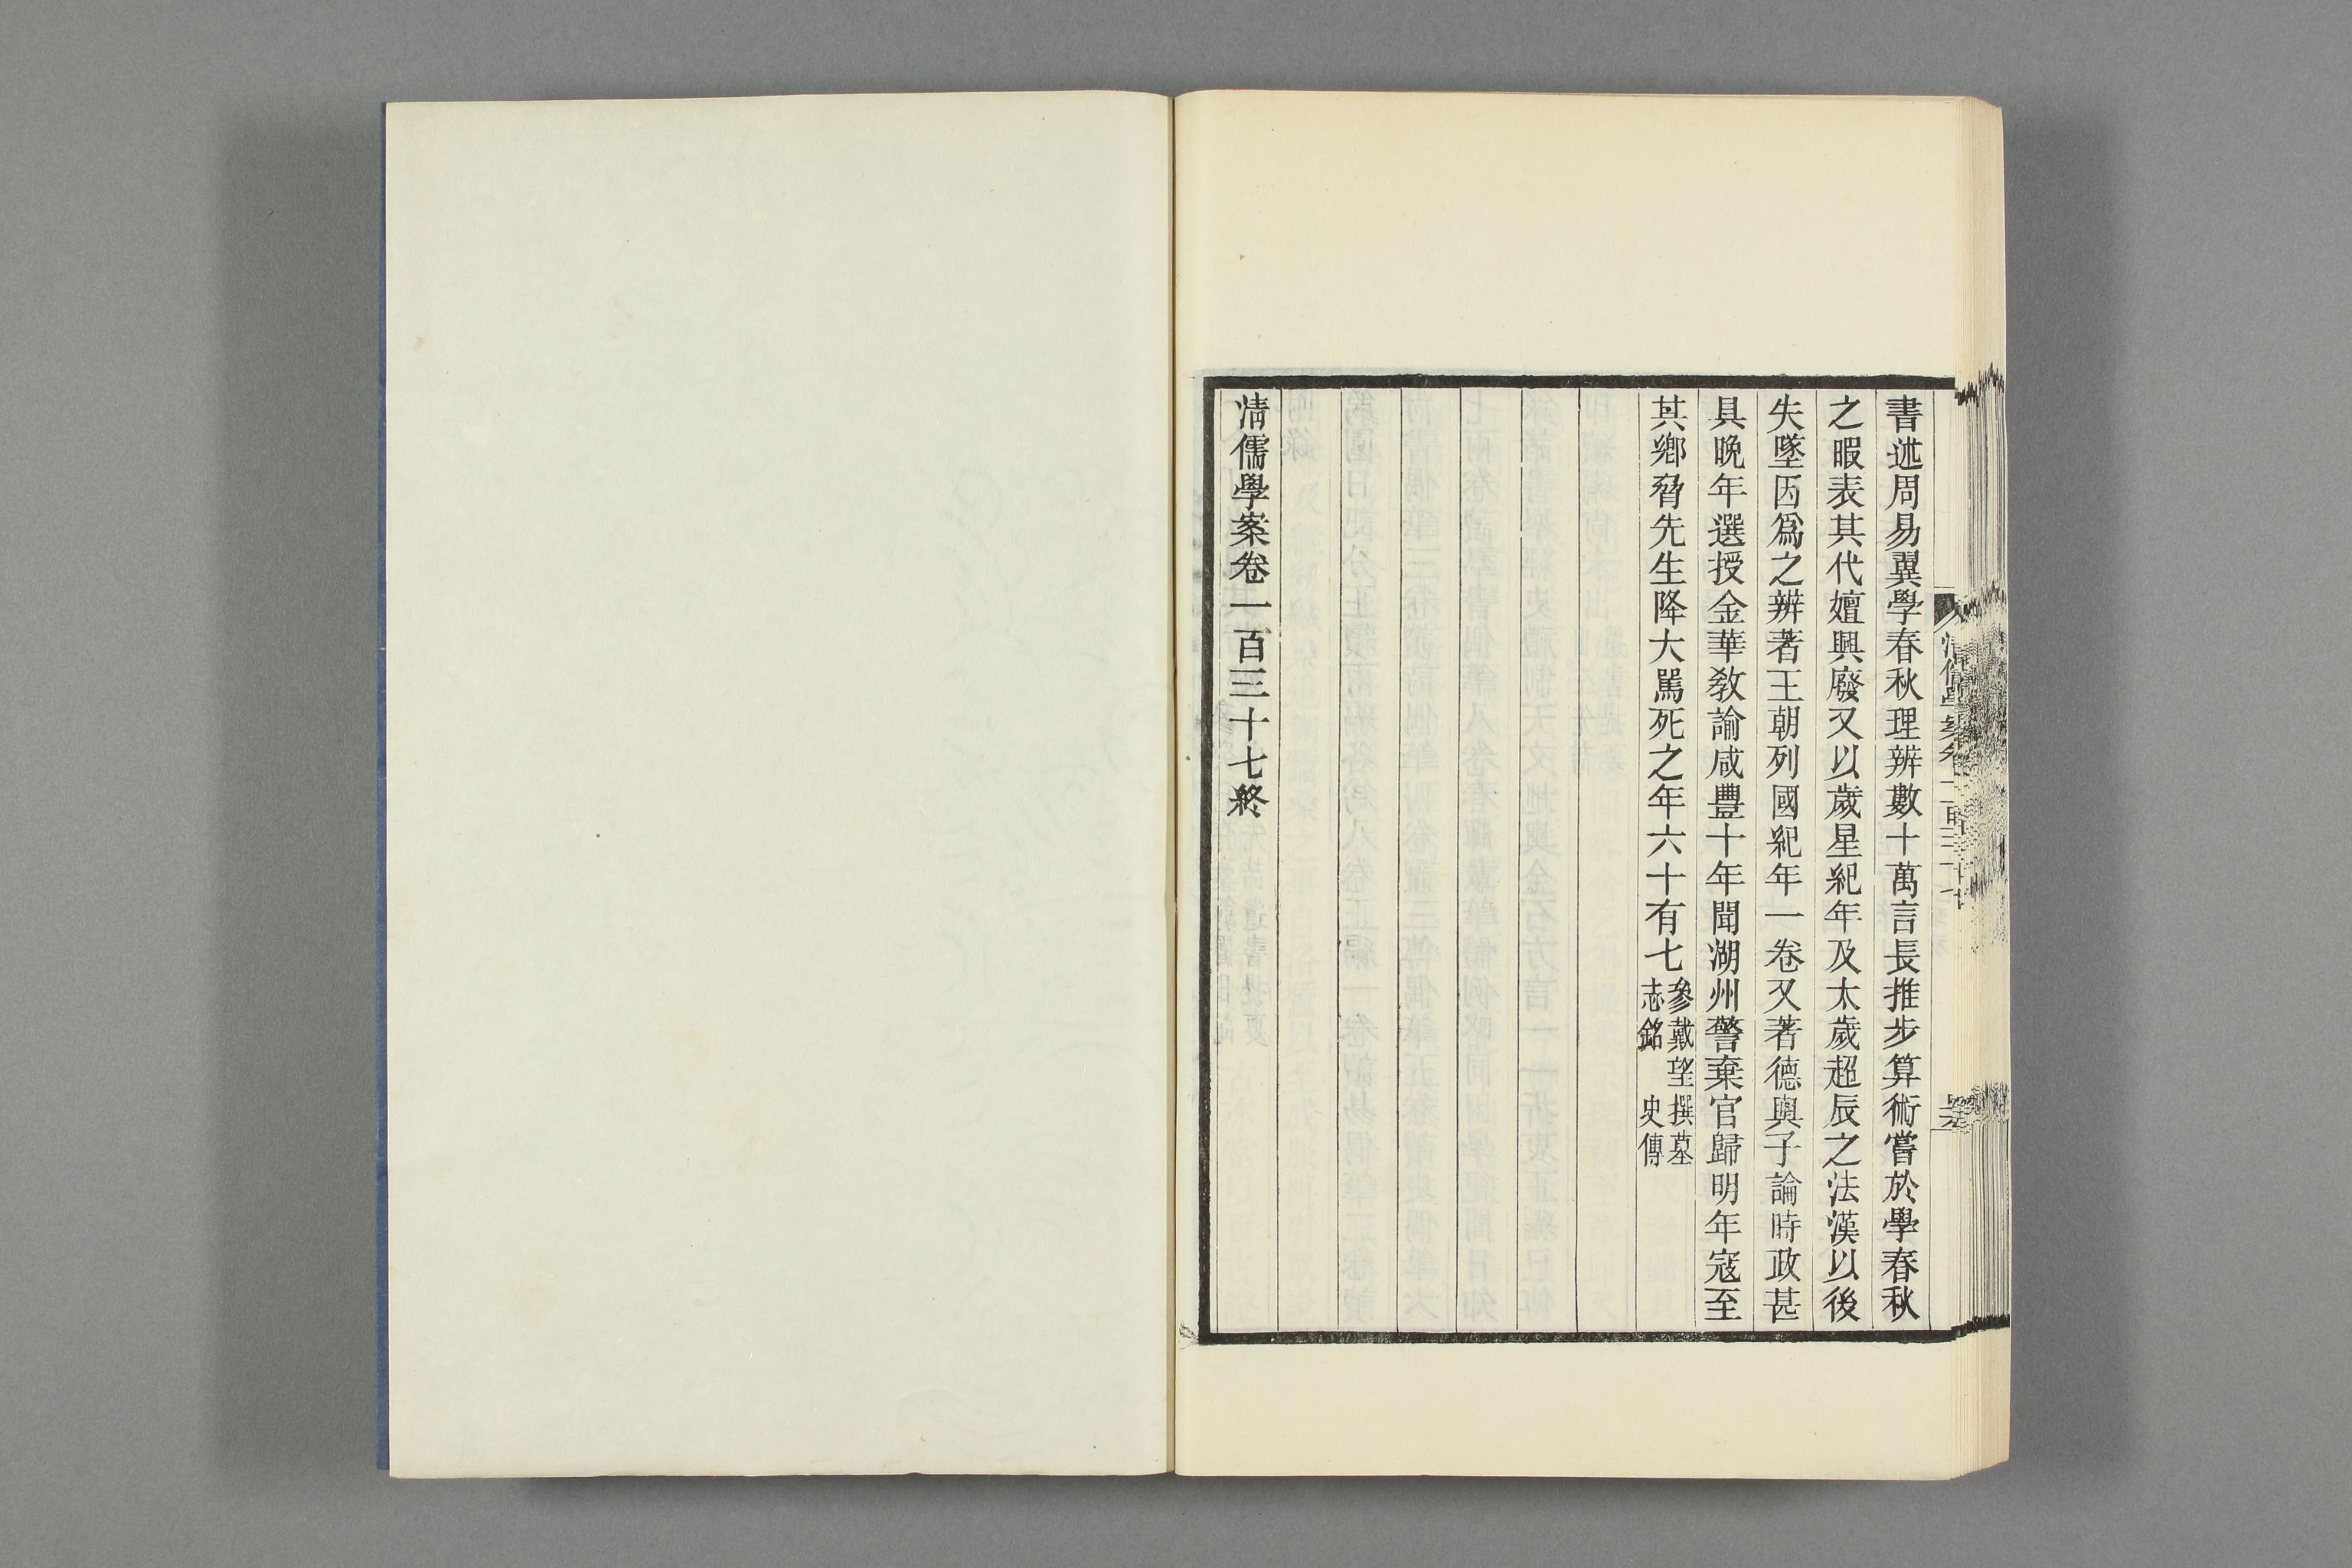 書述周易翼學春秋理辨數十萬言長推步算術嘗於學春秋
之暇表其代嬗興廢又以歲星紀年及太歲超辰之法漢以後
失墜因爲之辨著王朝列國紀年一卷又著德輿子論時政甚
具晚年選授金華敎諭咸豐十年聞湖州警棄官歸明年寇至
其鄉脅先生降大駡死之年六十有七
參戴望撰墓
志銘 史傳
清儒學案卷一百三十七終
清儒學案卷一百三十七